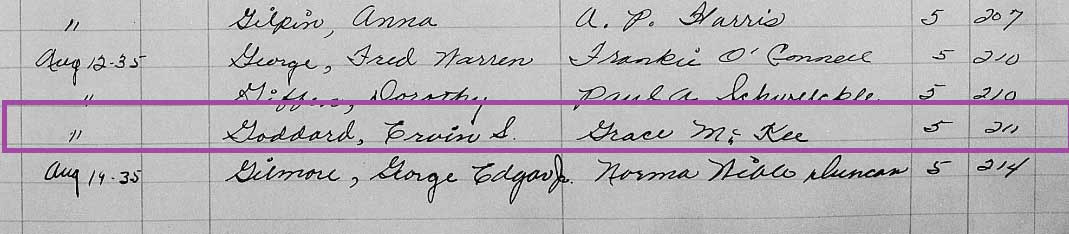 " Gilpin, Anna A. P. Harris 5 207
Aug 12-35 George, Fred Warren Frankie O'Connell 5 210
" Giffin, Dorothy Paul A. 5 210
" Goddard, Ervin S. Grace McKee 5 211
Aug 14-35 Gilmore, George Edgar Jr. Norma Duncan 5 214